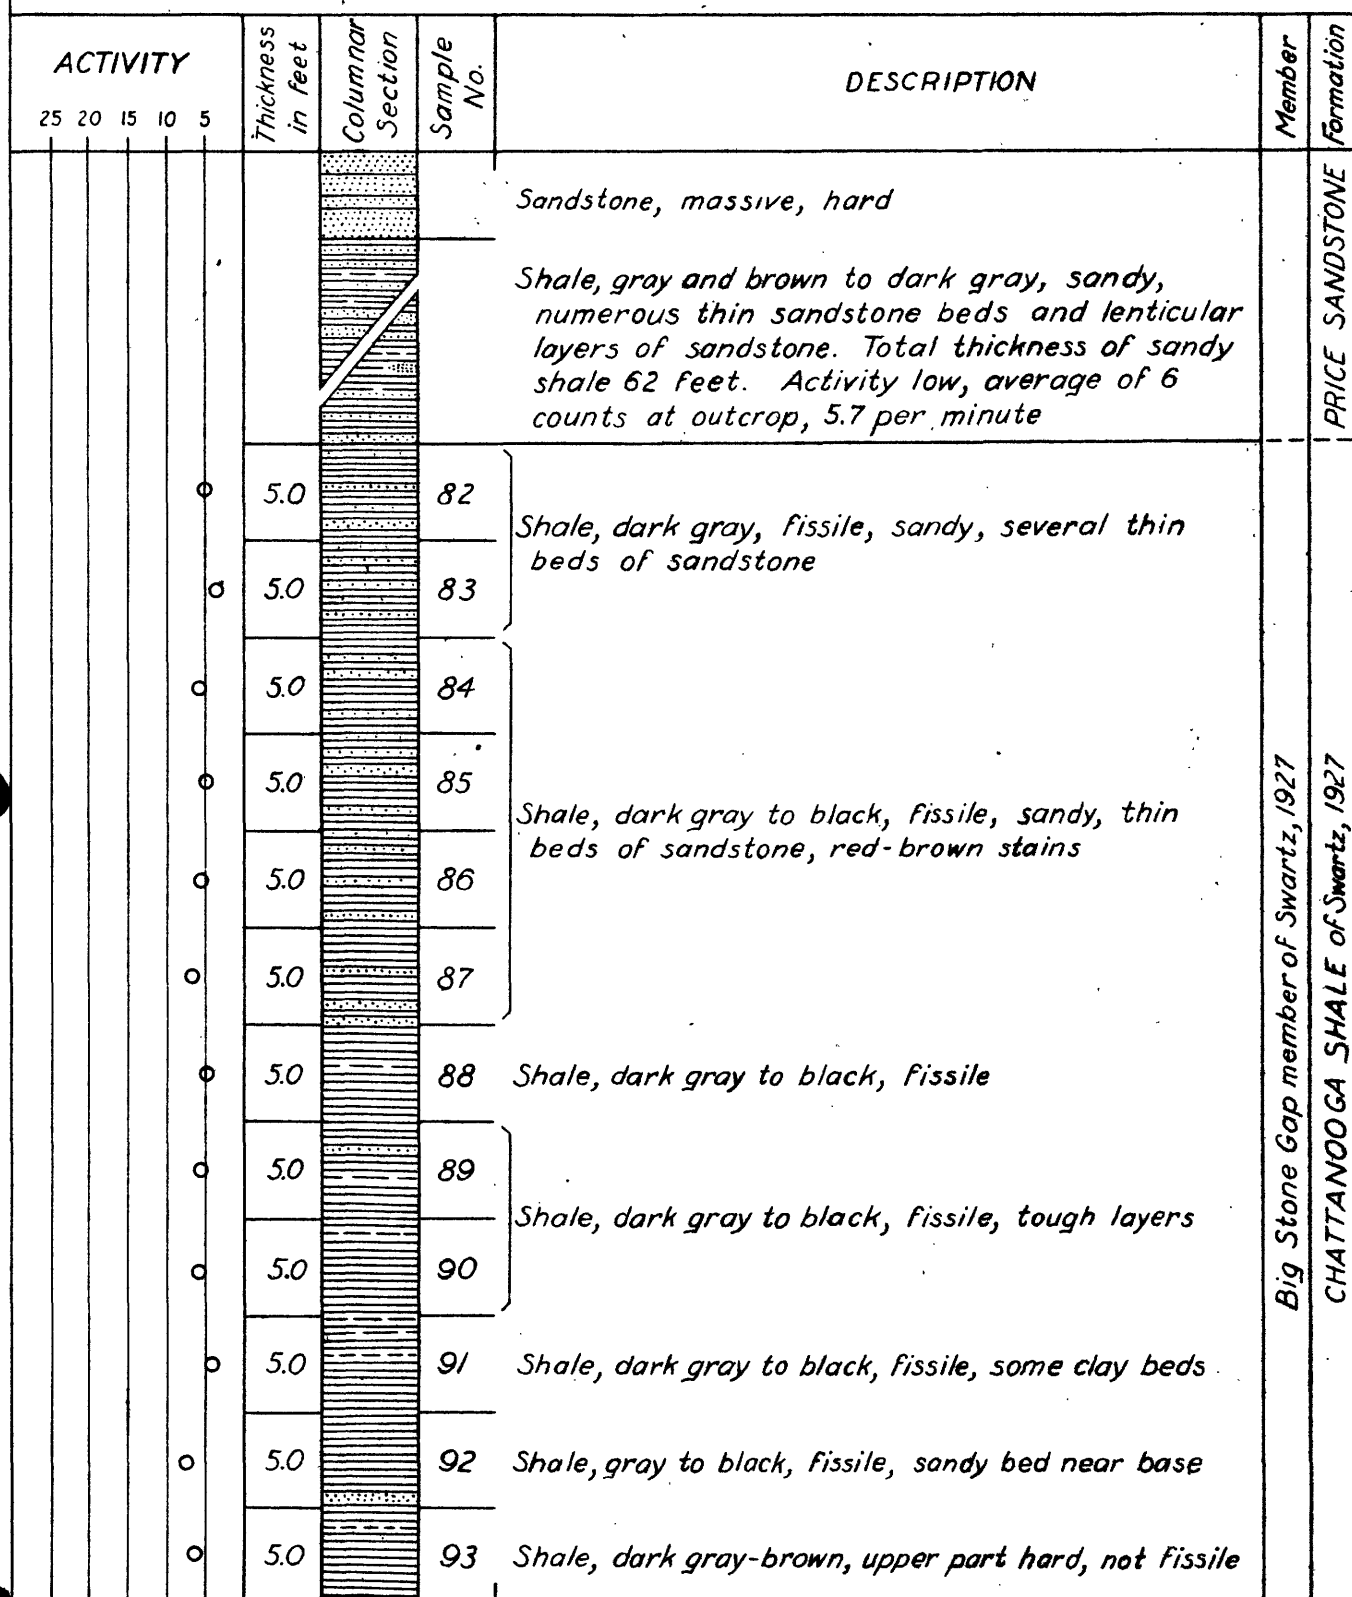 ACTIVITY
25 20 15 10 5
Thickness
in feet
Columnar
Section
Sample
No.
DESCRIPTION
Member
Formation
Sandstone, massive, hard
Shale, gray and brown to dark gray, sandy,
numerous thin sandstone beds and lenticular
layers of sandstone. Total thickness of sandy
shale 62 feet. Activity low, average of 6
counts at outcrop, 5.7 per minute
PRICE SANDSTONE
5.0 82
Shale, dark gray, fissile, sandy, several thin
beds of sandstone
5.0 83
5.0 84
5.0 85
Shale, dark gray to black, fissile, sandy, thin
beds of sandstone, red-brown stains
5.0 86
5.0 87
5.0 88 Shale, dark gray to black, fissile
5.0 89
Shale, dark gray to black, fissile, tough layers
5.0 90
5.0 91 Shale, dark gray to black, fissile, some clay beds
5.0 92 Shale, gray to black, fissile, sandy bed near base
5.0 93 Shale, dark gray-brown, upper part hard, not fissile
Big Stone Gap member of Swartz, 1927
CHATTANOOGA SHALE of Swartz, 1927